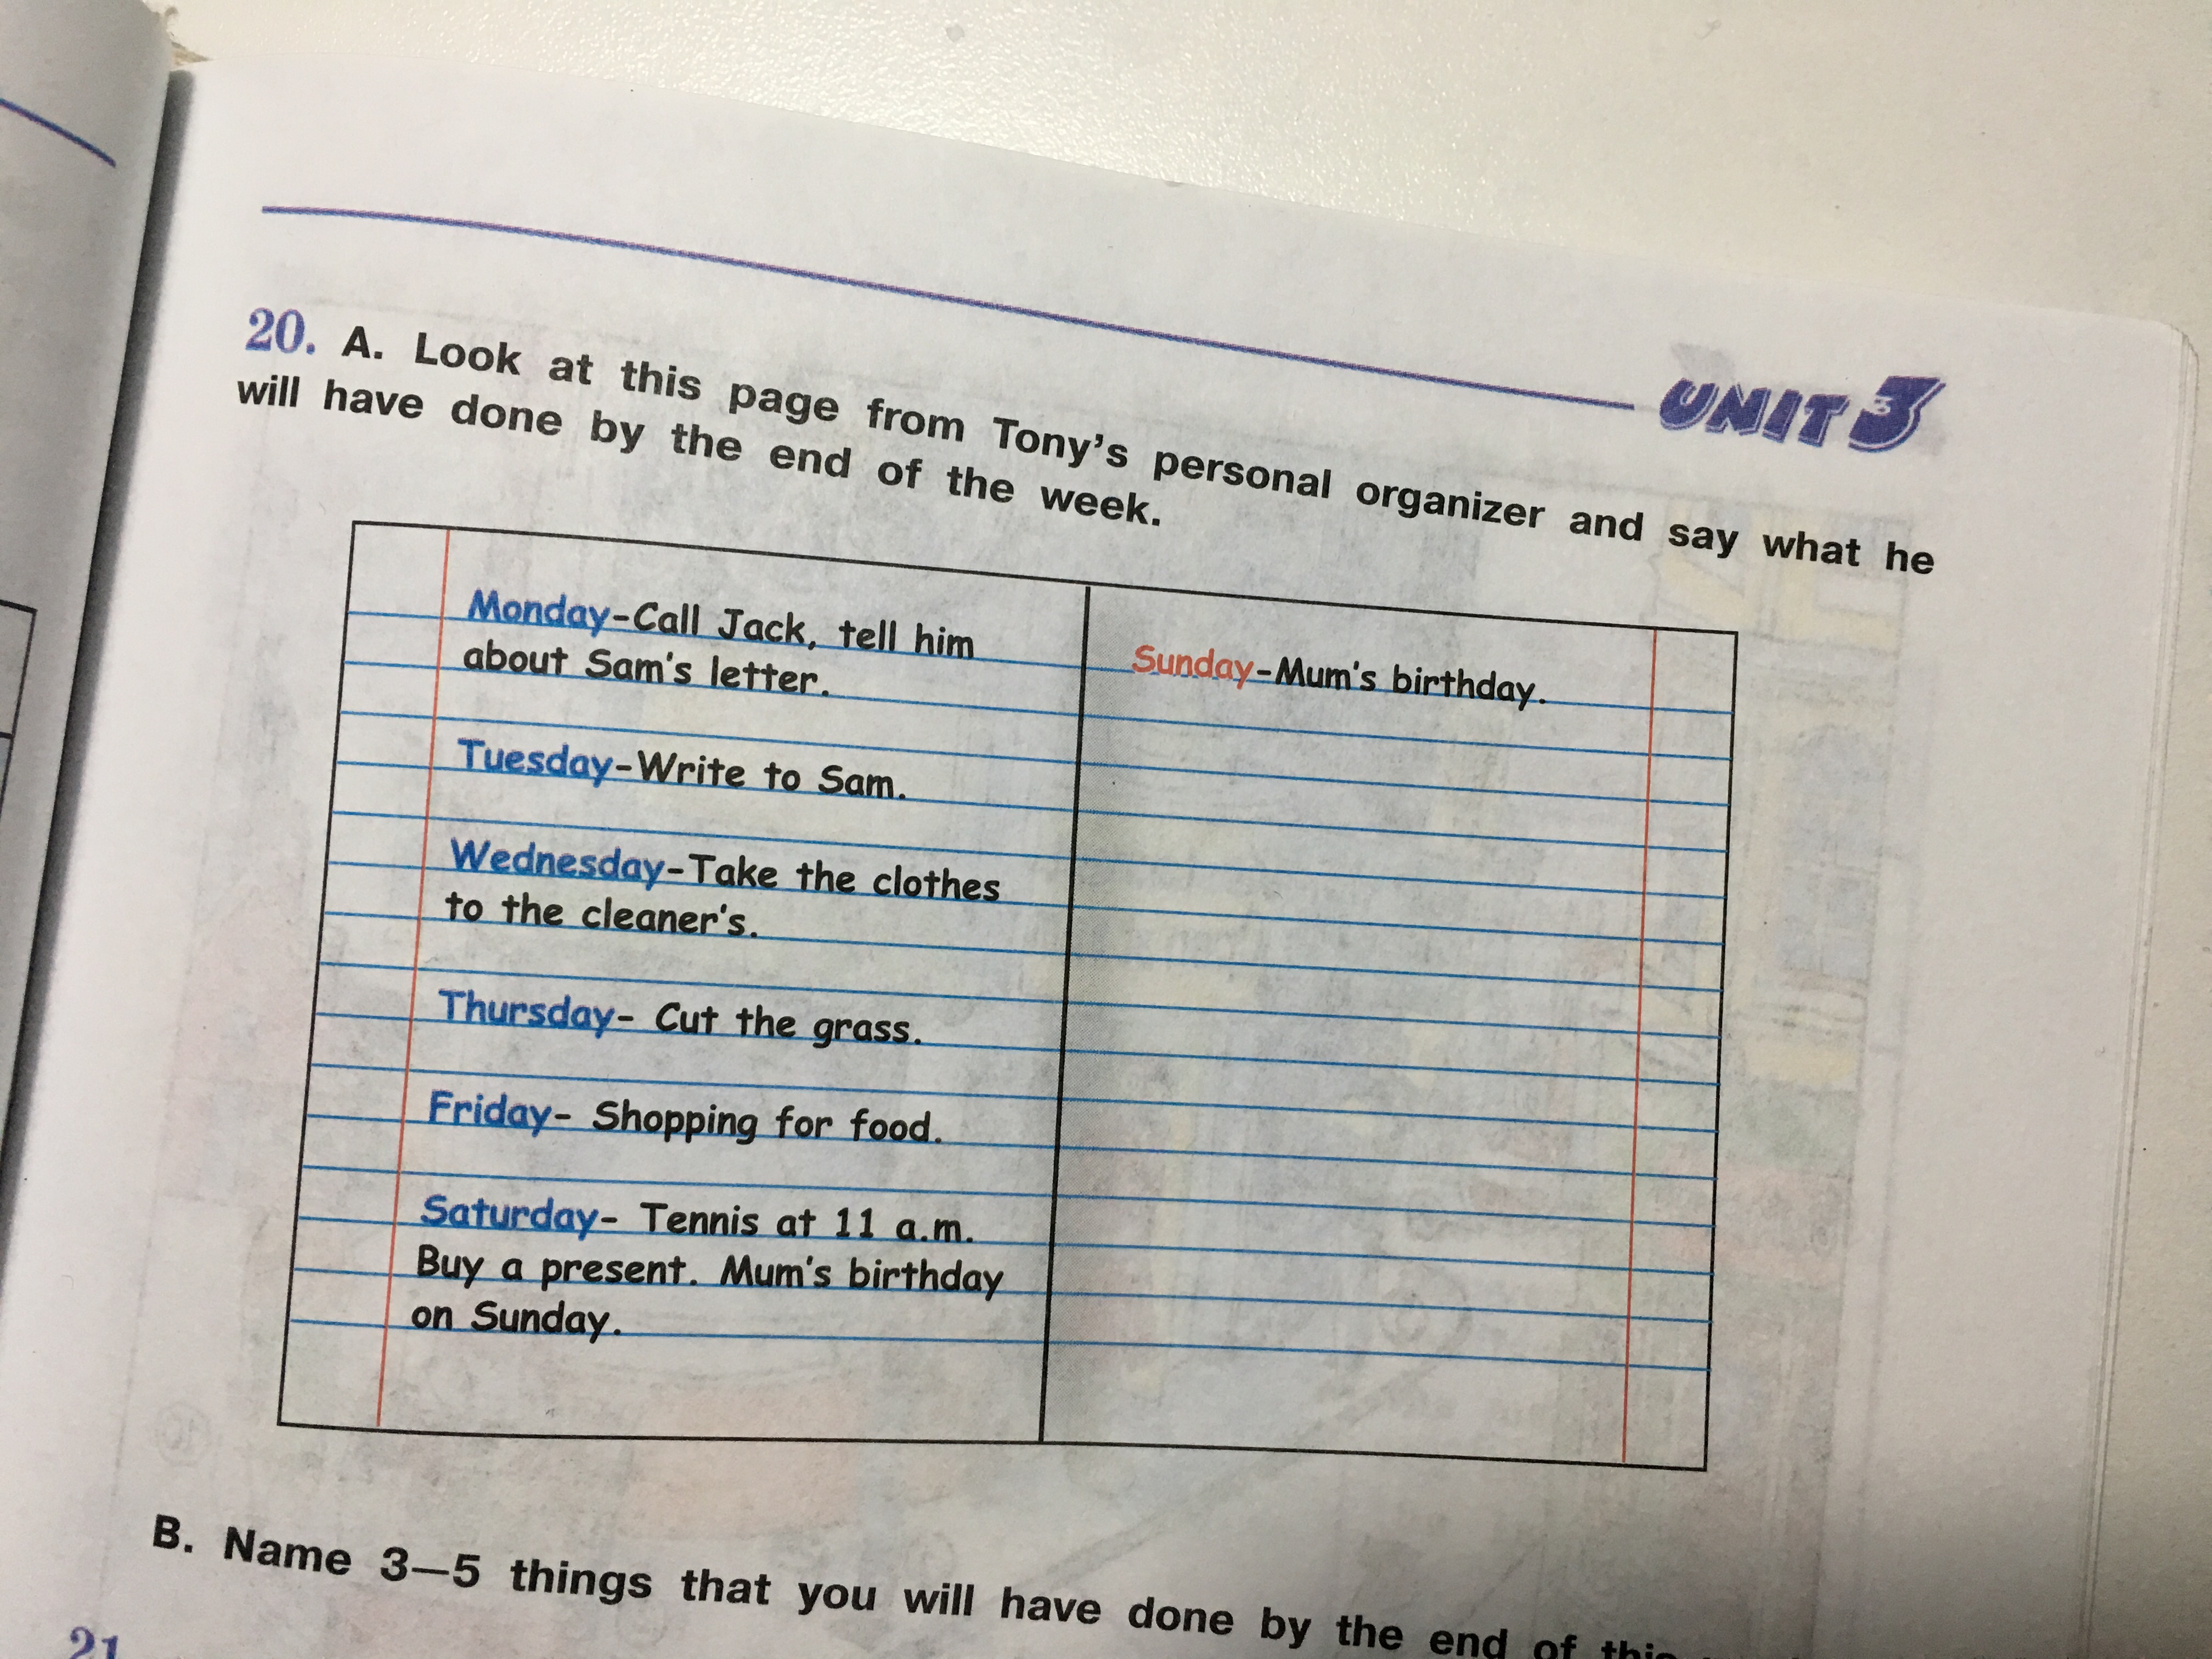 UNIT 3
20. A. Look at this page from Tony's personal organizer and say what he
will have done by the end of the week.
Monday-Call Jack, tell him
about Sam's letter.
Tuesday-Write to Sam.
Wednesday-Take the clothes
to the cleaner's.
Thursday- Cut the grass.
Friday- Shopping for food.
Saturday- Tennis at 11 a.m.
Buy a present. Mum's birthday
on Sunday.
Sunday-Mum's birthday.
B. Name 3—5 things that you will have done by the end of this
21